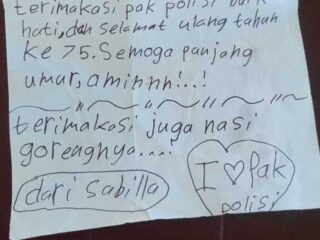 terimakasi pak polisi baik
hati,dan selamat ulang tahun
ke 75. Semoga panjang
umur, aminnn!..!
terimakasi juga nasi
gorengnya....!
dari sabilla
I ♡ Pak
polisi